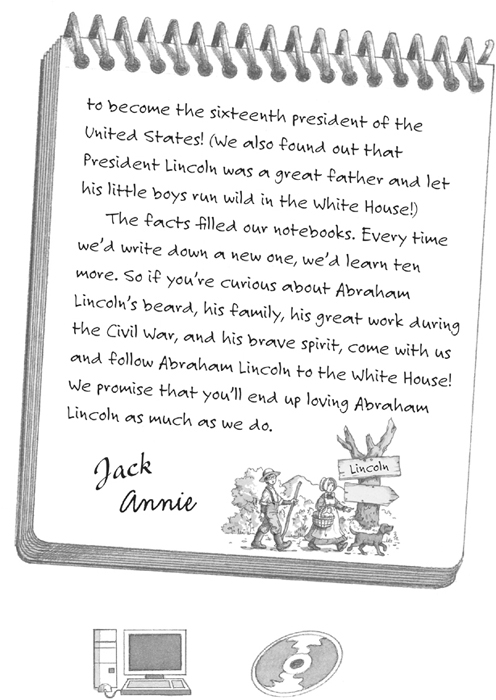 to become the sixteenth president of the
United States! (We also found out that
President Lincoln was a great father and let
his little boys run wild in the White House!)
The facts filled our notebooks. Every time
we'd write down a new one, we'd learn ten
more. So if you're curious about Abraham
Lincoln's beard, his family, his great work during
the Civil War, and his brave spirit, come with us
and follow Abraham Lincoln to the White House!
We promise that you'll end up loving Abraham
Lincoln as much as we do.
Lincoln
Jack
Annie